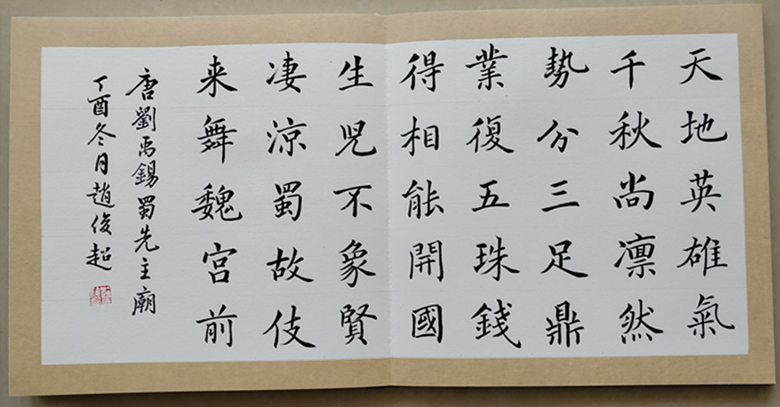 天地英雄氣
千秋尚凛然
勢分三足鼎
業復五珠錢
得相能開國
生児不象賢
凄涼蜀故伎
来舞魏宮前
唐劉禹錫蜀先主廟
丁酉冬月趙俊超